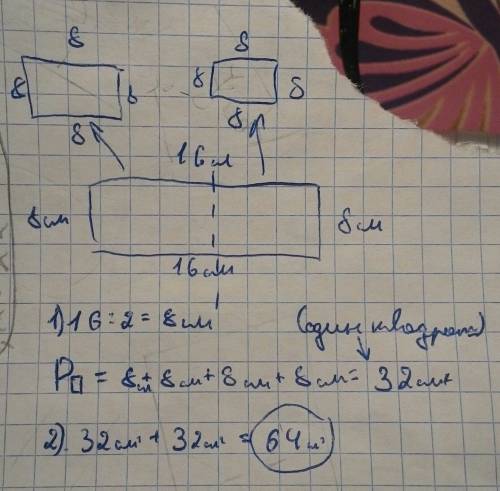 8 8
8 8 8 8
8 8
16см
8см 8см
16см
1) 16:2 = 8см (один квадрат)
P□ = 8см + 8см + 8см + 8см = 32см
2). 32см + 32см = 64